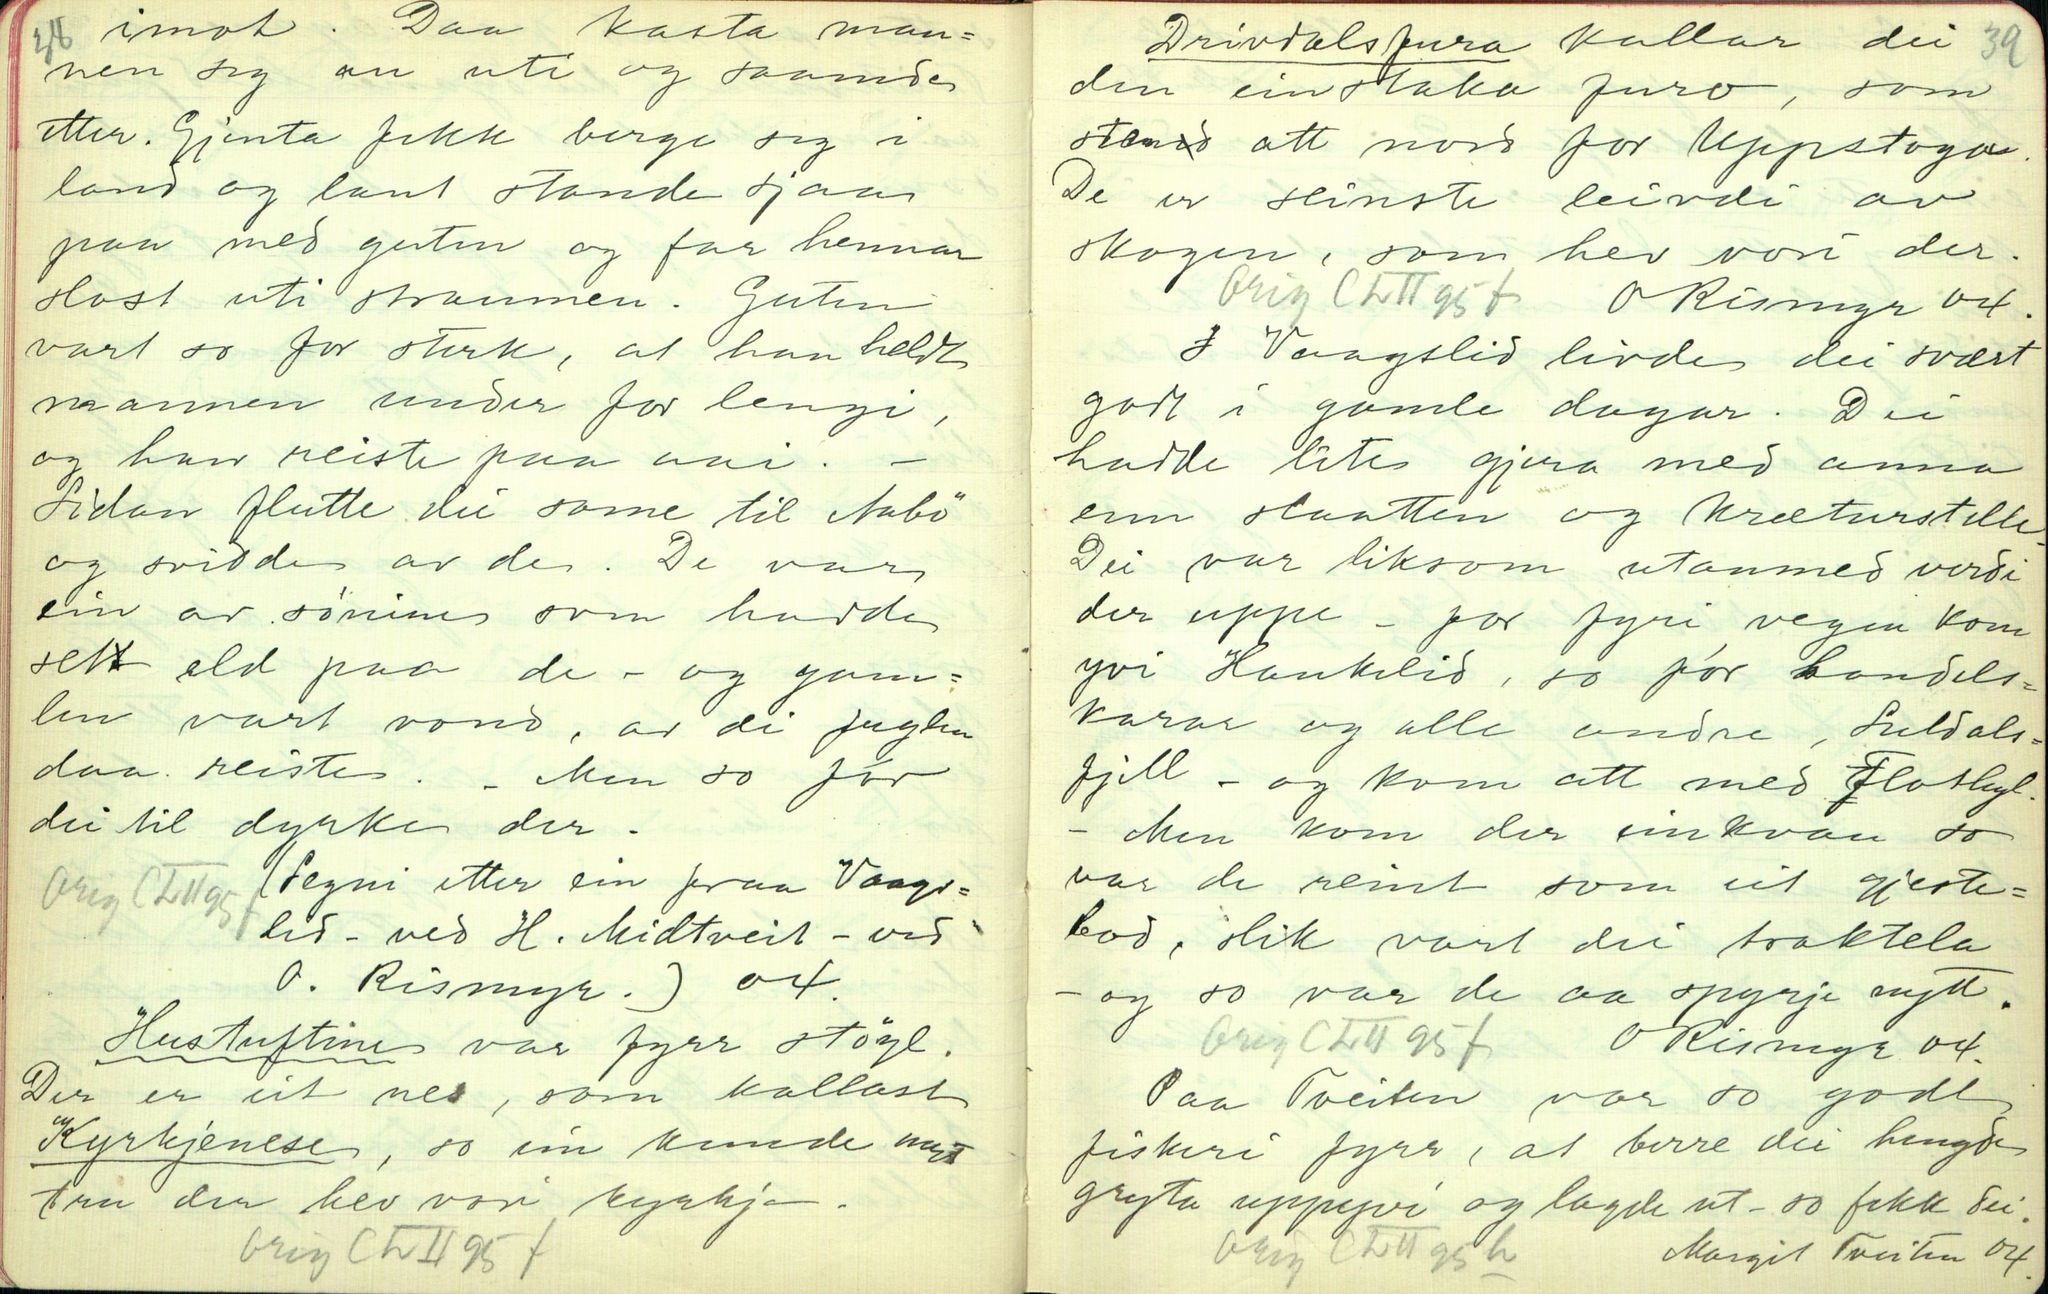 38
imot. Daa kasta man=
nen seg au uti og saamde
etter. Gjenta fekk berge seg i
land og laut stande sjaa
paa med guten og far hennar
slost uti straumen. Guten
vart so for sterk, at han heldt
mannen under for lengi,
og han reiste paa aai. –
Sidan flutte dei same til Nabö
og svidde av de. De var
ein av sönine som hadde
sett eld paa de – og gam=
len vart vond, av di fuglen
daa reiste. – Men so fór
dei til dyrke der.
Orig C L II 95 f
(Segni etter ein fraa Vaags=
lid – ved H. Midtveit – ved
O. Rismyr.) 04.
Hustuftine var fyrr stögl.
Der er eit nes, som kallast
Kyrkjenese, so ein kunde mest
tru der hev vori kyrkje.
Orig C L II 95 f
39
Drivdalsfura kallar dei
den einstaka furo, som
stend att nord for Uppstoga.
De er seinste leivdi av
skogen, som hev vori der.
Orig C L II 95 f O Rismyr 04.
I Vaagslid livde dei svært
godt i gamle dagar. Dei
hadde lite gjera med anna
enn slaatten og kræturstelle.
Dei var liksom utanmed verdi
der uppe – for fyri vegen kom
yvi Haukelid, so fór handels=
karar og alle andre, Suldals=
fjell – og kom att med Flothyl.
– Men kom der einkvan so
var de reint som eit gjeste=
bod, slik vart dei traktela
– og so var de aa spyrje nytt.
Orig C L II 95 f O Rismyr 04.
Paa Tveiten var so godt
fiskeri fyrr, at berre dei hengde
gryta uppyvi og lagde ut – so fekk dei.
Orig C L II 95 h Margit Tveiten 04.